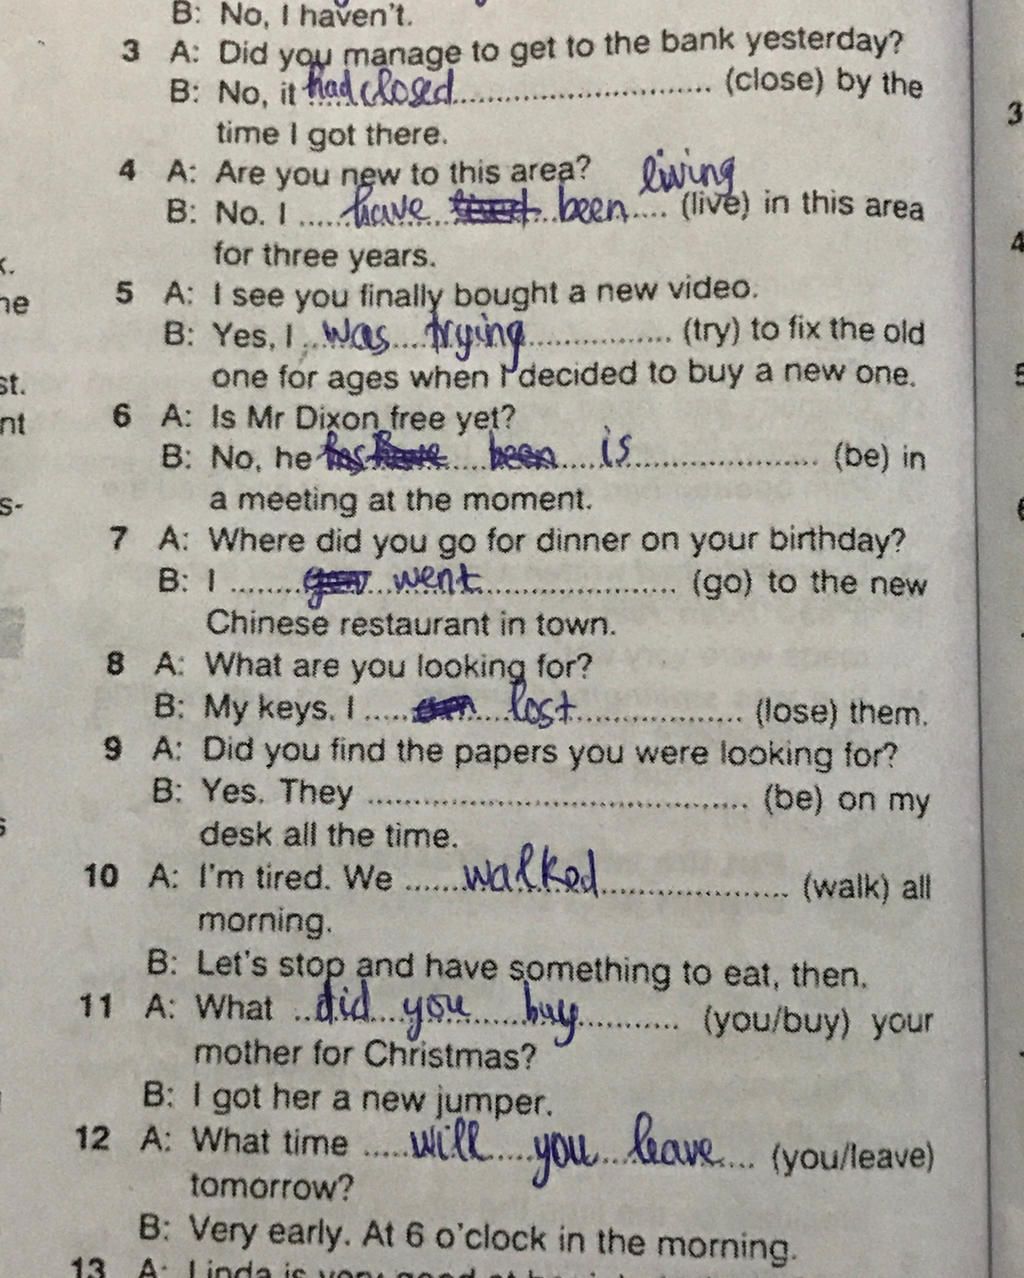 B: No, I haven't.
3 A: Did you manage to get to the bank yesterday?
B: No, it had closed.............................. (close) by the
time I got there.
4 A: Are you new to this area?
living
B: No. I ..... have been .... (live) in this area
for three years.
5 A: I see you finally bought a new video.
B: Yes, I ..was....trying................. (try) to fix the old
one for ages when I decided to buy a new one.
6 A: Is Mr Dixon free yet?
B: No, he has have been is...................... (be) in
a meeting at the moment.
7 A: Where did you go for dinner on your birthday?
B: I ........ went........................ (go) to the new
Chinese restaurant in town.
8 A: What are you looking for?
B: My keys. I ..... lost.................... (lose) them.
9 A: Did you find the papers you were looking for?
B: Yes. They ............................................ (be) on my
desk all the time.
10 A: I'm tired. We ......walked...................... (walk) all
morning.
B: Let's stop and have something to eat, then.
11 A: What ..did....you......buy............ (you/buy) your
mother for Christmas?
B: I got her a new jumper.
12 A: What time .....will....you...leave.... (you/leave)
tomorrow?
B: Very early. At 6 o'clock in the morning.
13 A: Linda is very good at
k.
he
st.
nt
s-
s
3
4
5
6